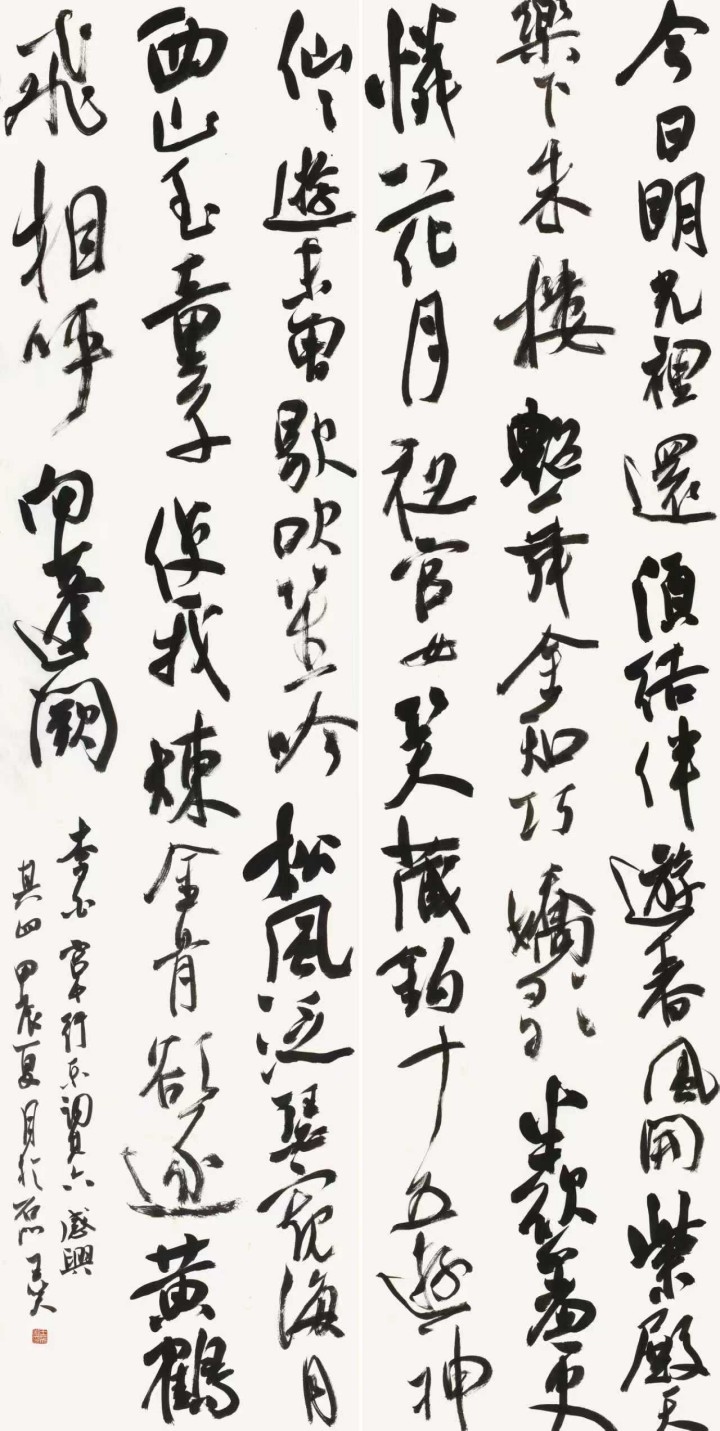 今日明光裡還須結伴遊春風開紫殿天
樂下朱樓艷舞全知巧嬌歌半欲羞更
憐花月夜宮女笑藏鉤十五遊神
仙々遊未曾歇吹笙吟松風泛瑟窺海月
西山玉童子使我煉金骨欲逐黃鶴
飛相呼向蓬闕
李白宮中行樂詞其六感興
其四甲辰夏月於石門